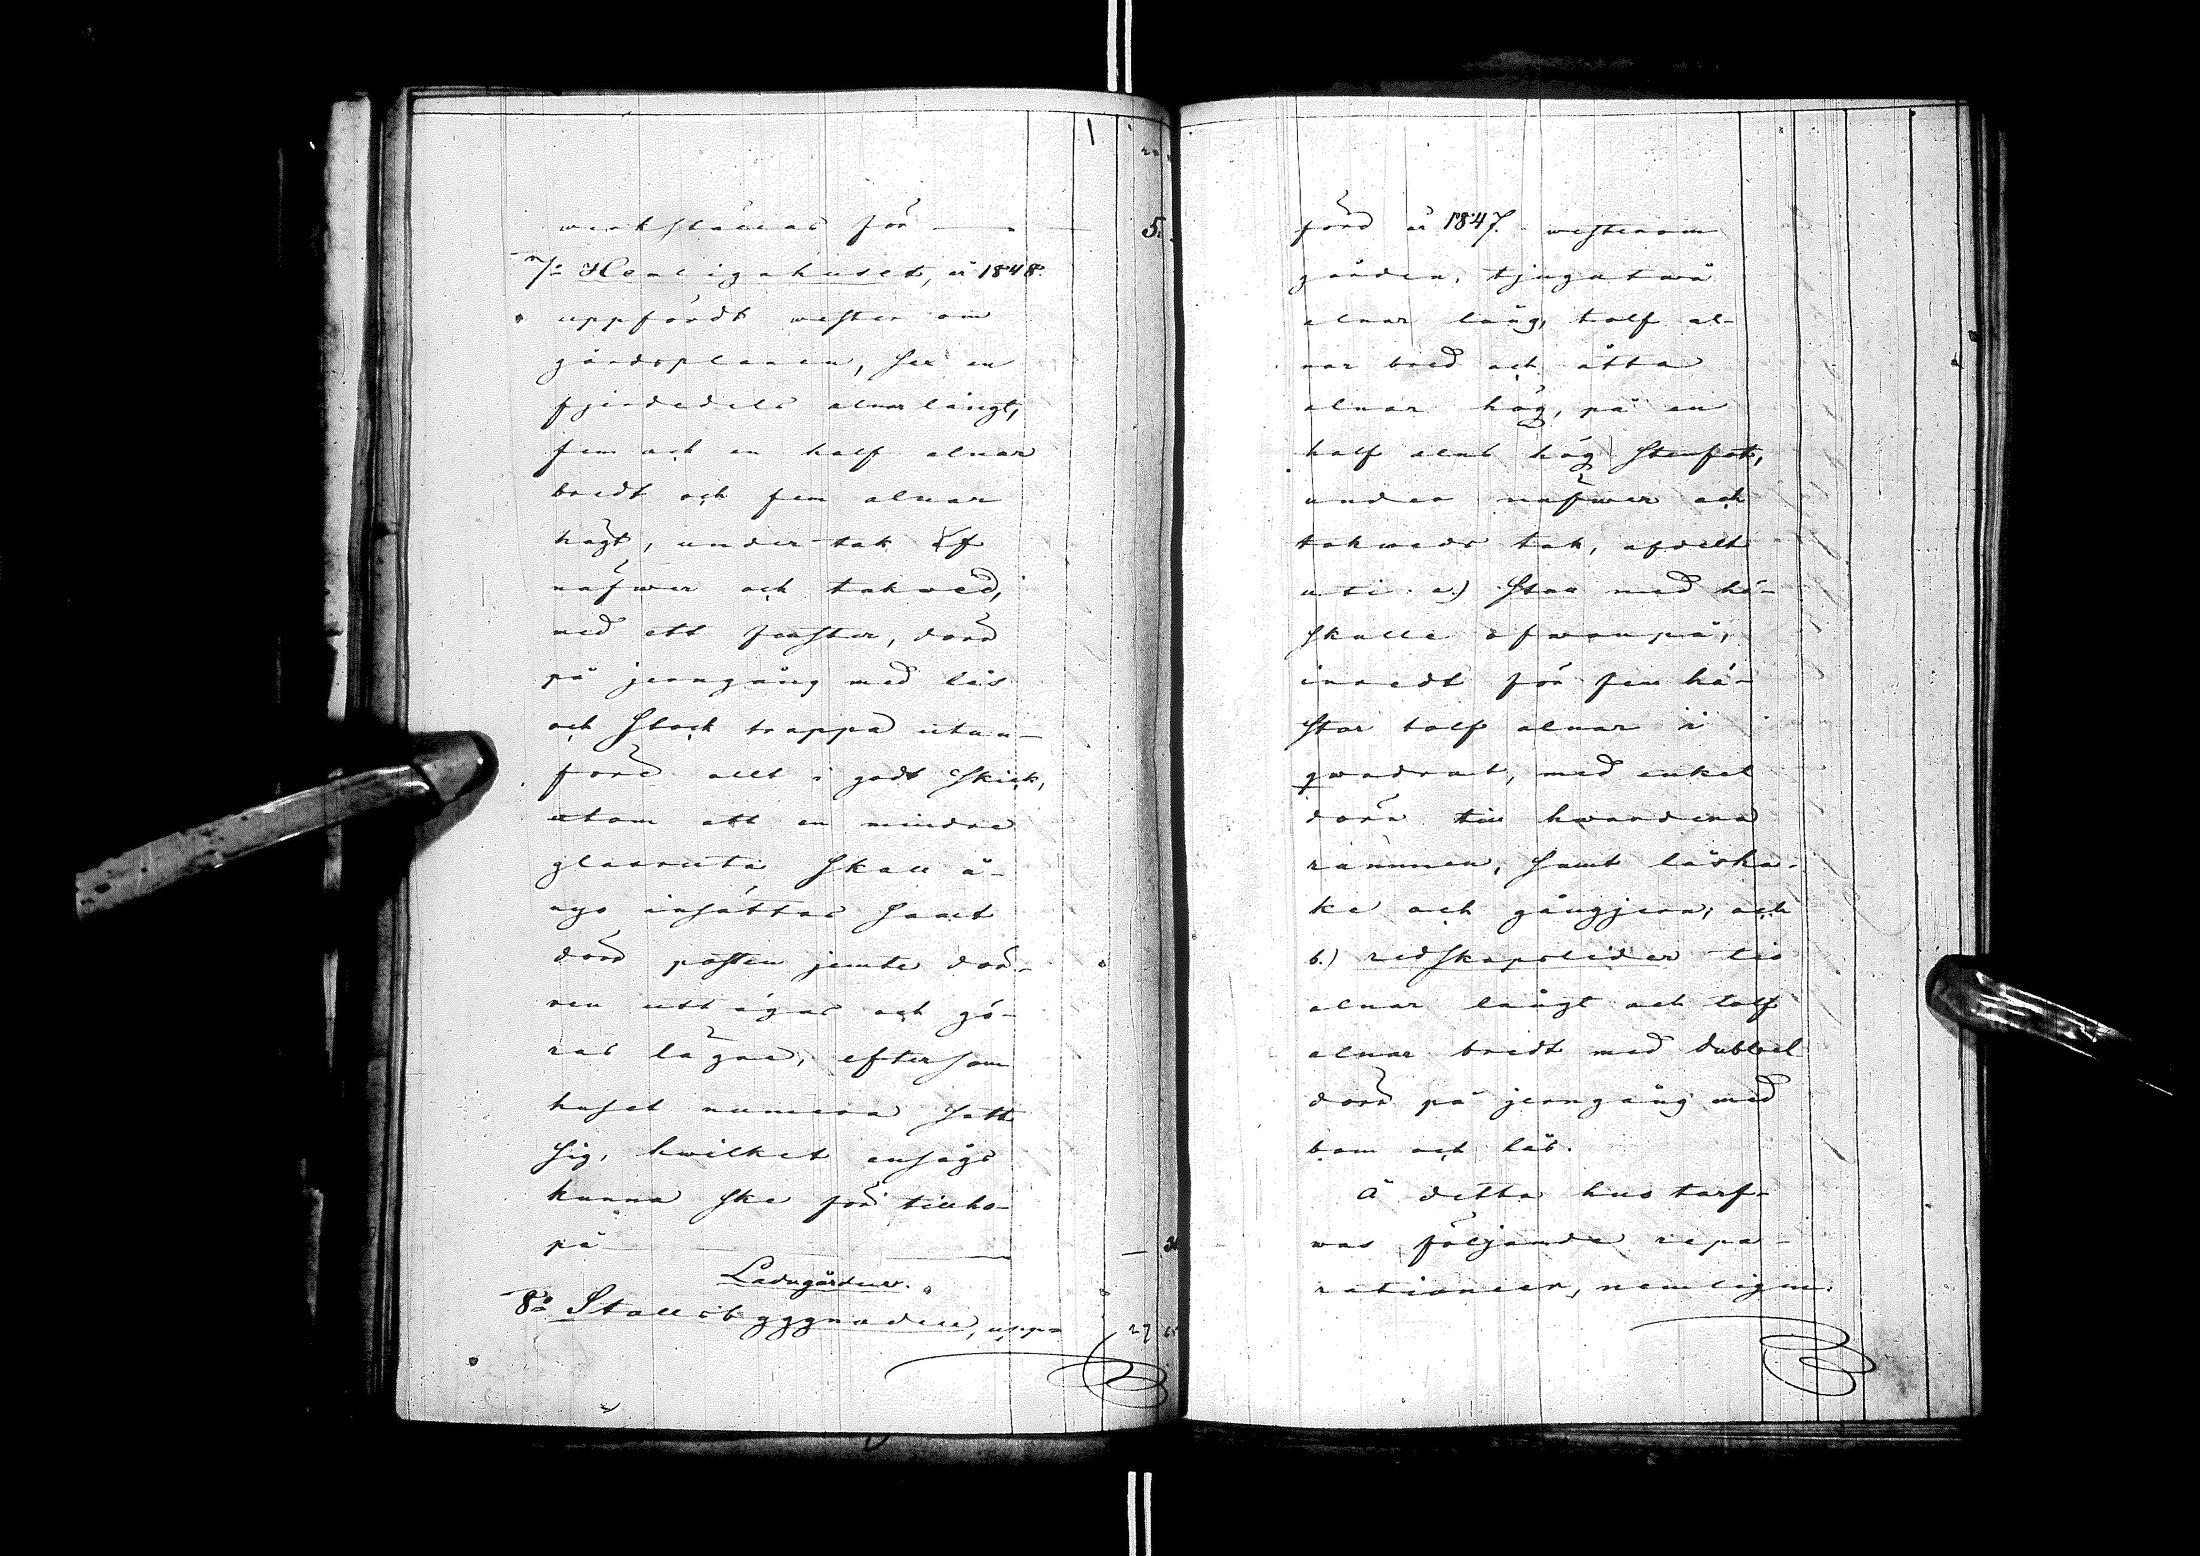 werkställas för — " — 5.
7/o Hemligahuset, år 1848.
uppfördt wester om
gårdsplanen, sex en
fjerdedels alnar långt,
fem och en half alnar
bredt och fem alnar
högt, under tak af
näfwer och takwed,
med ett fenster, dörr
på jerngång med lås
och Stock trappa utan-
före allt i godt Skick,
utom att en mindre
glasruta Skall å-
nyo insättas Samt
dörr posten jemte dör-
ren uttagas och gö-
ras lägre, eftersom
huset numera Satt
Sig, hwilket ansågs
kunna Ske för tillho-
pa —
Ladugården.
8o Stallsbyggnaden, upp-
27
förd år 1847. westerom
gården, tjugutwå
alnar lång, tolf al-
nar bred och åtta
alnar hög, på en
half alns hög Stenfot,
under näfwer och
takweds tak, afdelt
uti a.) Stall med hö-
Skulle ofwanpå,
inredt för fem hä-
Star tolf alnar i
qwadrat, med enkel
dörr till hwardera
rummen, Samt låsha-
ke och gångjern, och
b.) redskapslider tio
alnar långt och tolf
alnar bredt med dubbel
dörr på jerngång med
bom och lås.
Å detta hus tarf-
was följande repa-
rationeer, nemligen: